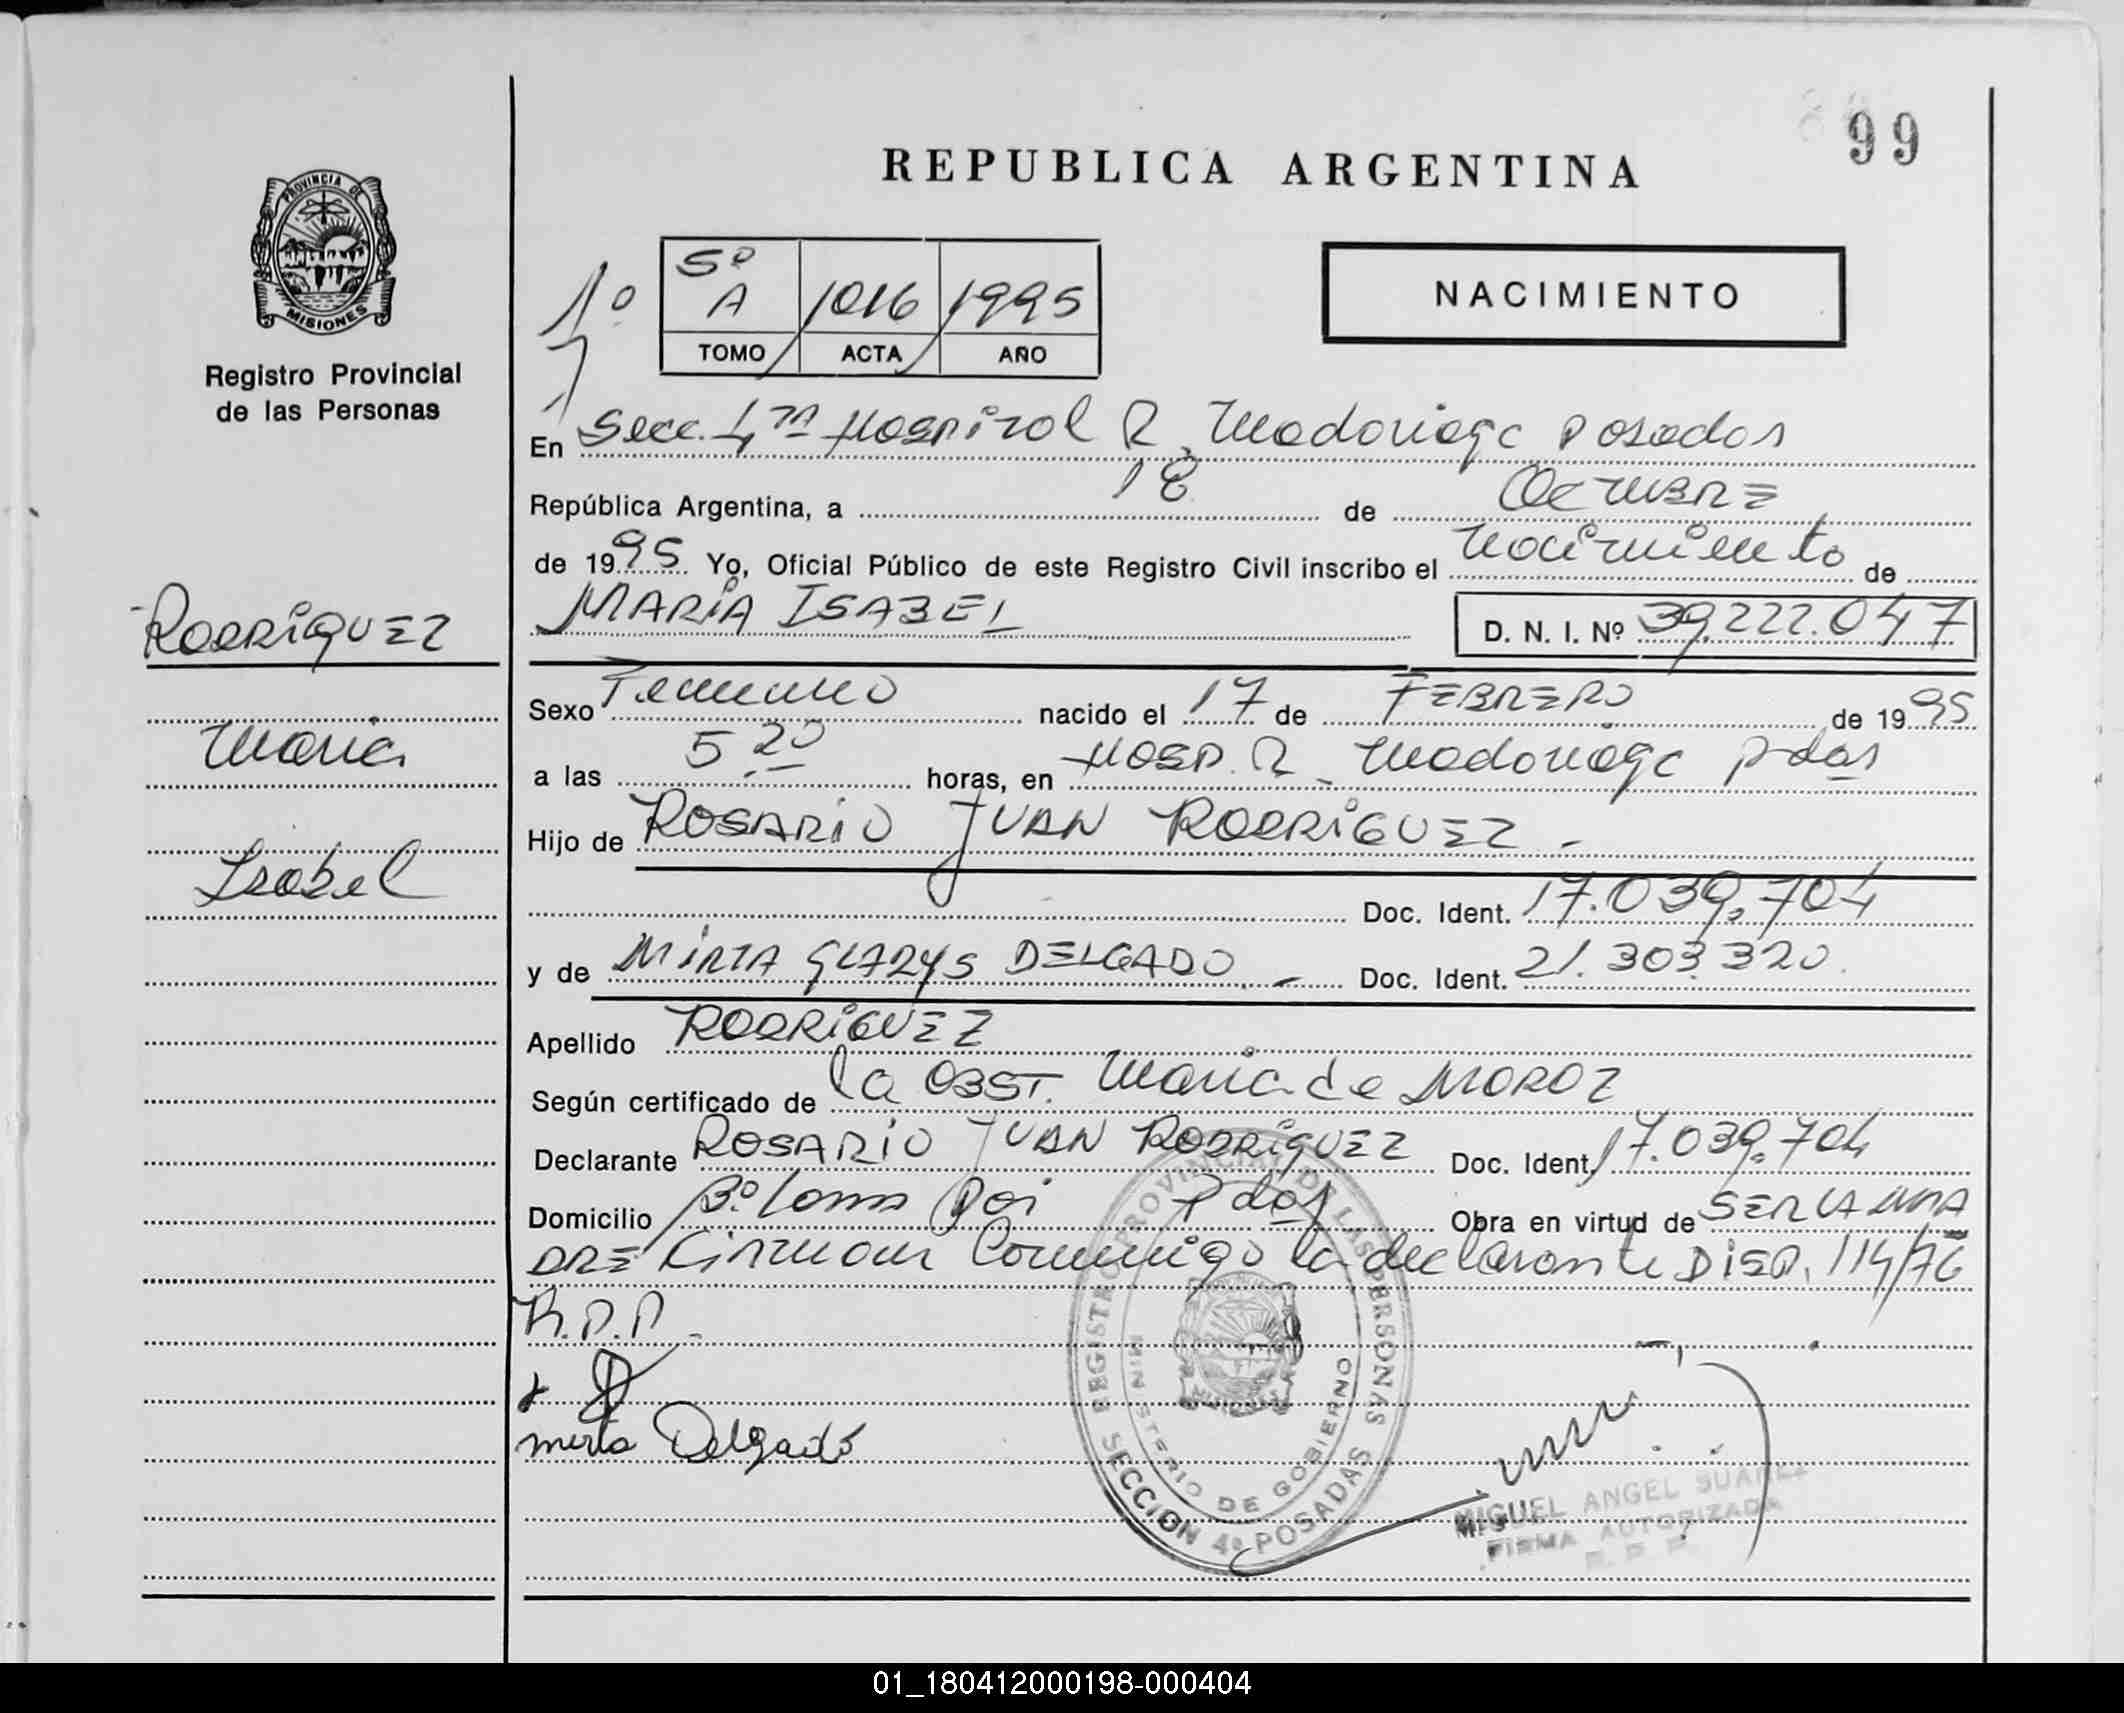 99
REPUBLICA ARGENTINA
PROVINCIA DE
MISIONES
Registro Provincial
de las Personas
1º
5º A 1016 1995
TOMO ACTA AÑO
NACIMIENTO
En Secc. 4ta Hospital R. Madariaga Posadas
República Argentina, a 18 de Octubre
de 1995 Yo, Oficial Público de este Registro Civil inscribo el nacimiento de
MARIA ISABEL D. N. I. Nº 39.222.047
Rodriguez
Maria
Isabel
Sexo Femenino nacido el 17 de FEBRERO de 1995
a las 5 20 horas, en Hosp. R. Madariaga Pdas
Hijo de ROSARIO JUAN RODRIGUEZ -
Doc. Ident. 17.039.704
y de MIRTA GLADYS DELGADO - Doc. Ident. 21.303.320
Apellido RODRIGUEZ
Según certificado de la OBST. Maria de MOROZ
Declarante ROSARIO JUAN RODRIGUEZ Doc. Ident. 17.039.704
Domicilio Bº Loma Poi Pdas Obra en virtud de SER LA MA
DRE Firman Conmigo la declarante DISP. 114/76
R.P.P.
mirta Delgado
REGISTRO PROVINCIAL DE LAS PERSONAS
MINISTERIO DE GOBIERNO
MISIONES
SECCION 4ª POSADAS
MIGUEL ANGEL SUAREZ
FIRMA AUTORIZADA
R. P. P.
01_180412000198-000404